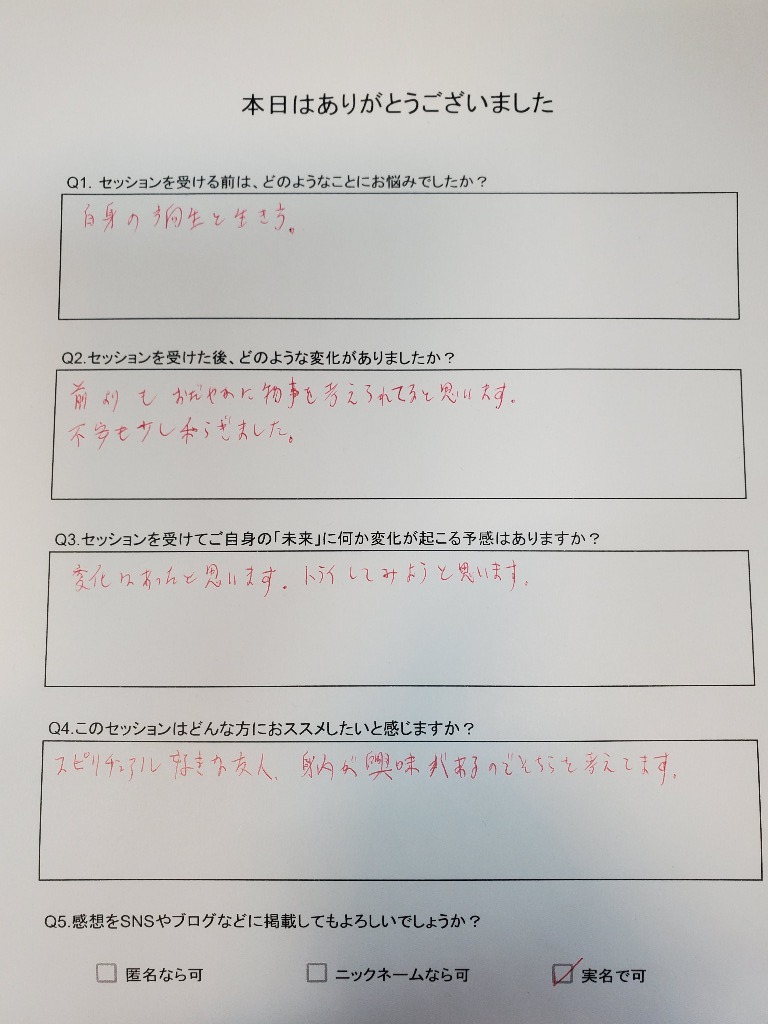 本日はありがとうございました
Q1. セッションを受ける前は、どのようなことにお悩みでしたか？
自身の方向生と生き方。
Q2.セッションを受けた後、どのような変化がありましたか？
前よりも おだやかに物事を考えられてると思います。
不安も少し和らぎました。
Q3.セッションを受けてご自身の「未来」に何か変化が起こる予感はありますか？
変化はあったと思います。トライしてみようと思います。
Q4.このセッションはどんな方におススメしたいと感じますか？
スピリチュアル好きな友人、身内が興味があるのでそちらを考えてます。
Q5.感想をSNSやブログなどに掲載してもよろしいでしょうか？
匿名なら可 ニックネームなら可 実名で可